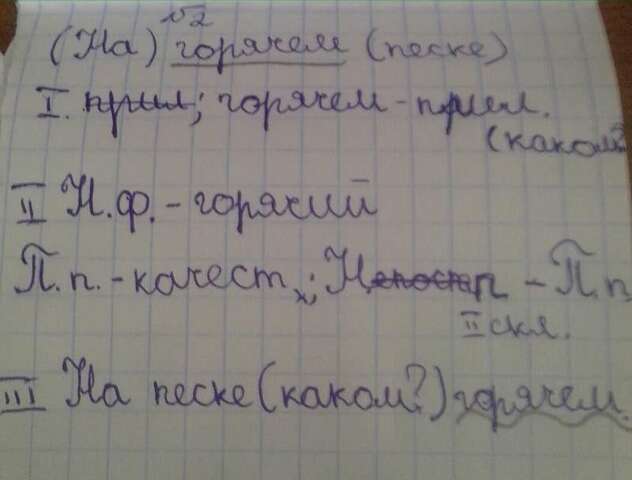 √2
(На) горячем (песке)
I. прил; горячем - прил.
(каком?
II Н.ф. - горячий
П.п. - качест,; Н - П.п
II скл.
III На песке (каком?) горячем.